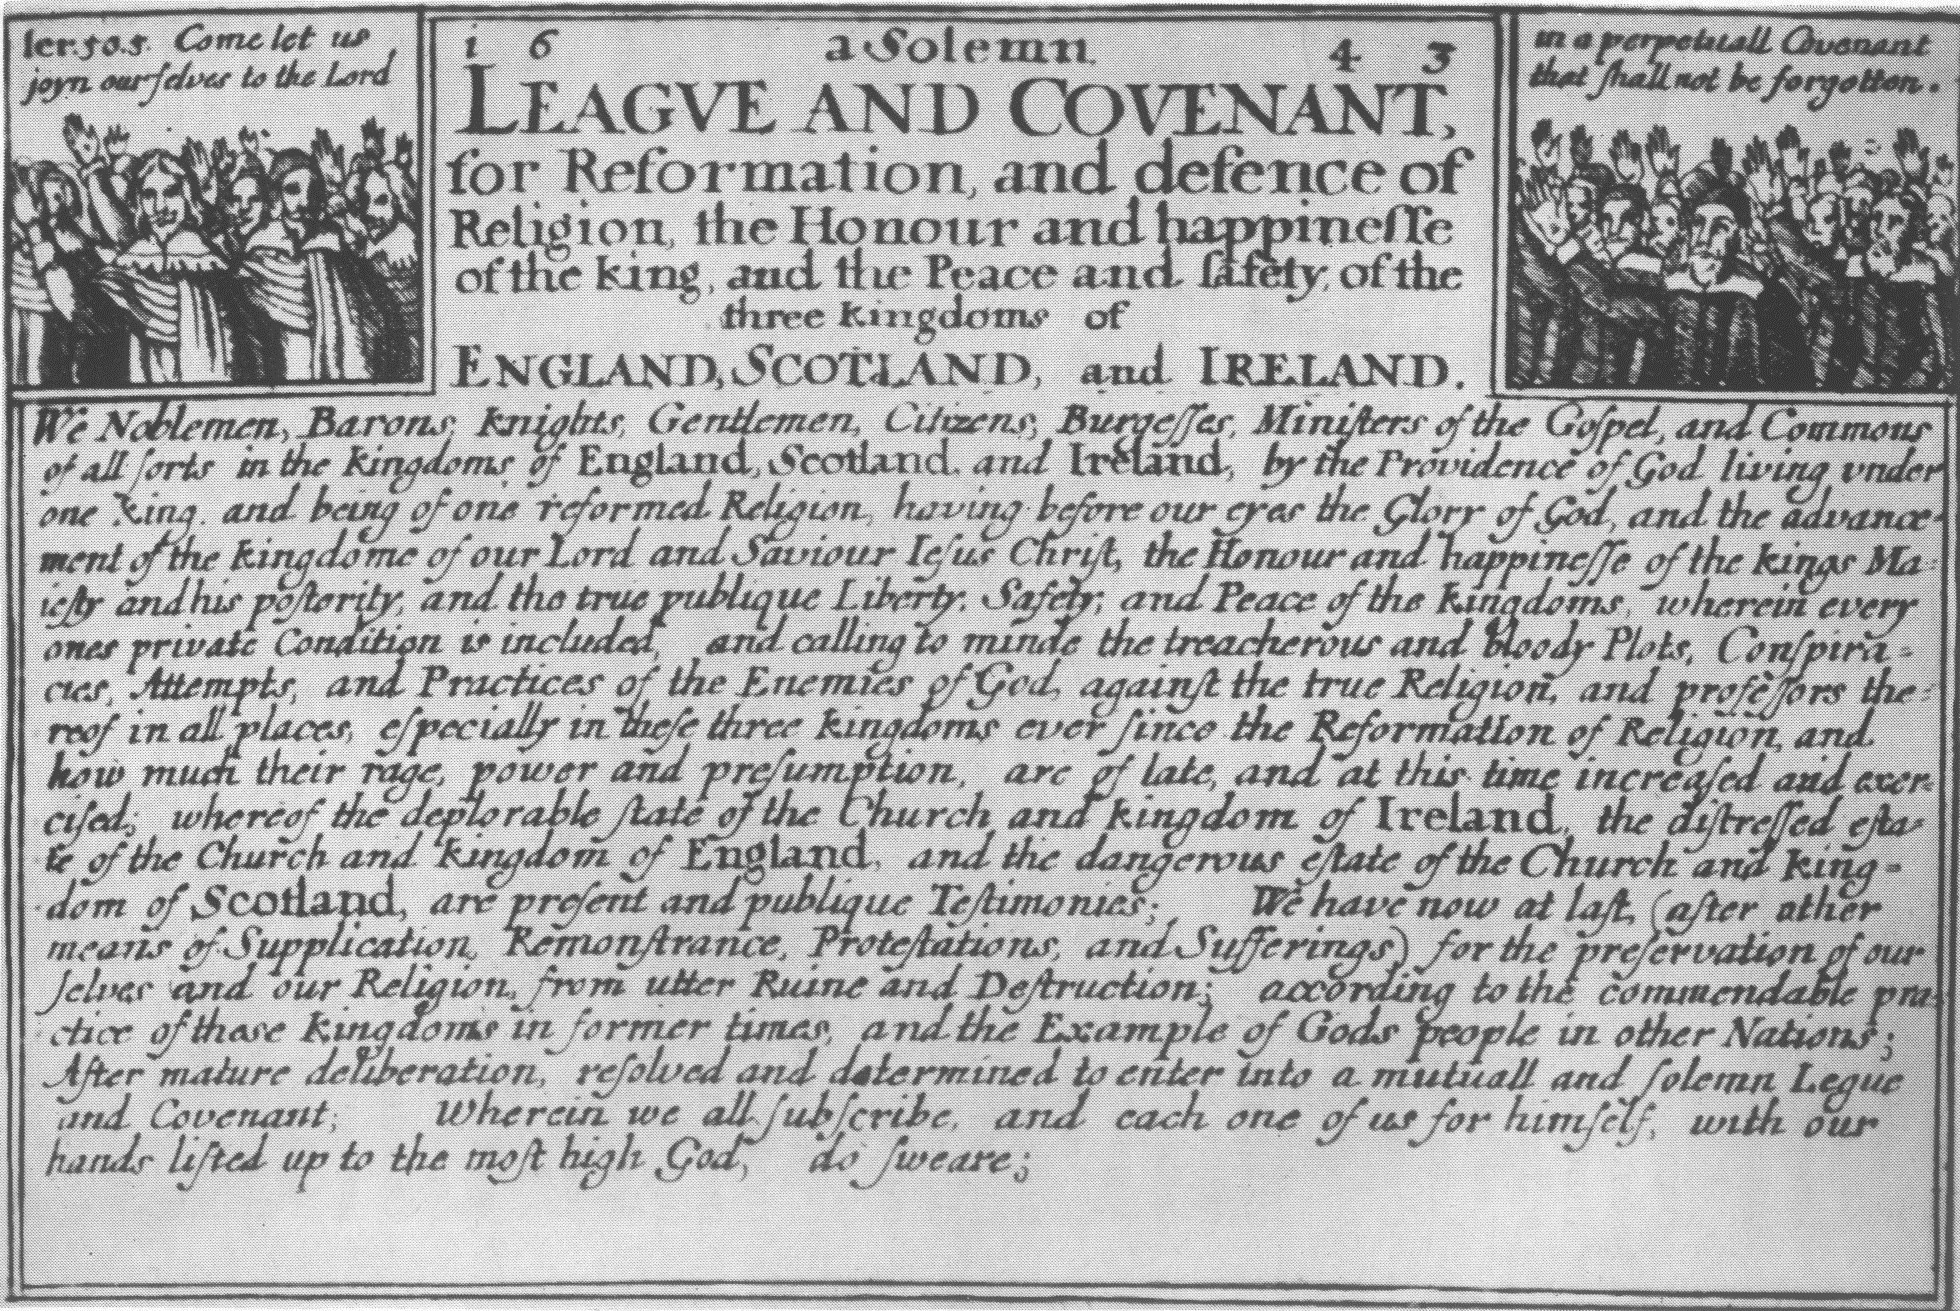 Ier. 50.5. Come let us
joyn ourſelves to the Lord
in a perpetuall Covenant
that ſhall not be forgotten.
i 6 a Solemn 4 3
LEAGVE AND COVENANT,
for Reformation, and defence of
Religion, the Honour and happineſſe
of the king, and the Peace and ſafety of the
three kingdoms of
ENGLAND, SCOTLAND, and IRELAND.
We Noblemen, Barons, knights, Gentlemen, Citizens, Burgeſſes, Miniſters of the Goſpel, and Commons
of all ſorts in the kingdoms of England, Scotland, and Ireland, by the Providence of God living vnder
one king, and being of one reformed Religion, having before our eyes the Glory of God, and the advance-
ment of the kingdome of our Lord and Saviour Ieſus Chriſt, the Honour and happineſſe of the kings Ma-
ieſty and his poſterity, and the true publique Liberty, Safety, and Peace of the kingdoms, wherein every
ones private Condition is included, and calling to minde the treacherous and bloody Plots, Conſpira-
cies, Attempts, and Practices of the Enemies of God, againſt the true Religion, and profeſſors the-
reof in all places, eſpecially in theſe three kingdoms ever ſince the Reformation of Religion, and
how much their rage, power and preſumption, are of late, and at this time increaſed and exer-
ciſed; whereof the deplorable ſtate of the Church and kingdom of Ireland, the diſtreſſed eſta-
te of the Church and kingdom of England, and the dangerous eſtate of the Church and king-
dom of Scotland, are preſent and publique Teſtimonies; We have now at laſt, (after other
means of Supplication, Remonſtrance, Proteſtations, and Sufferings) for the preſervation of our
ſelves and our Religion, from utter Ruine and Deſtruction; according to the commendable pra-
ctice of theſe kingdoms in former times, and the Example of Gods people in other Nations;
After mature deliberation, reſolved and determined to enter into a mutuall and ſolemn Legue
and Covenant; Wherein we all ſubſcribe, and each one of us for himſelf, with our
hands lifted up to the moſt high God, do ſweare;